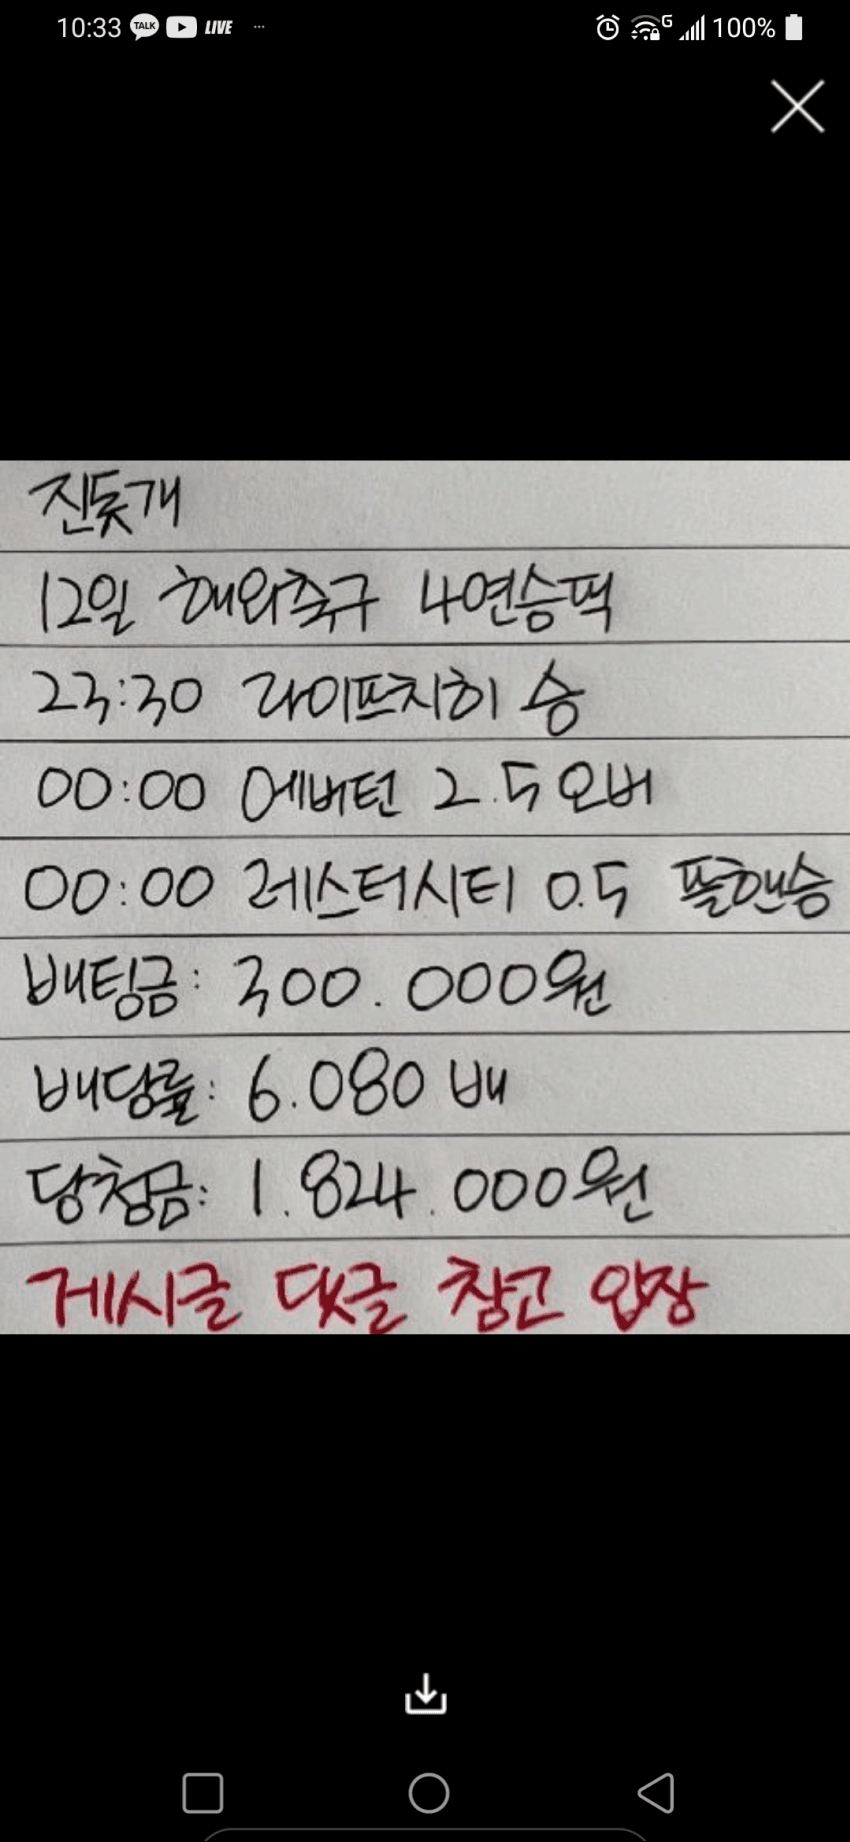 10:33 TALK LIVE ... G 100%
진돗개
12일 해외축구 4연승픽
23:30 라이프치히 승
00:00 에버턴 2.5 오버
00:00 레스터시티 0.5 플핸승
배팅금: 300.000원
배당률: 6.080 배
당첨금: 1.824.000원
게시글 댓글 참고 입장